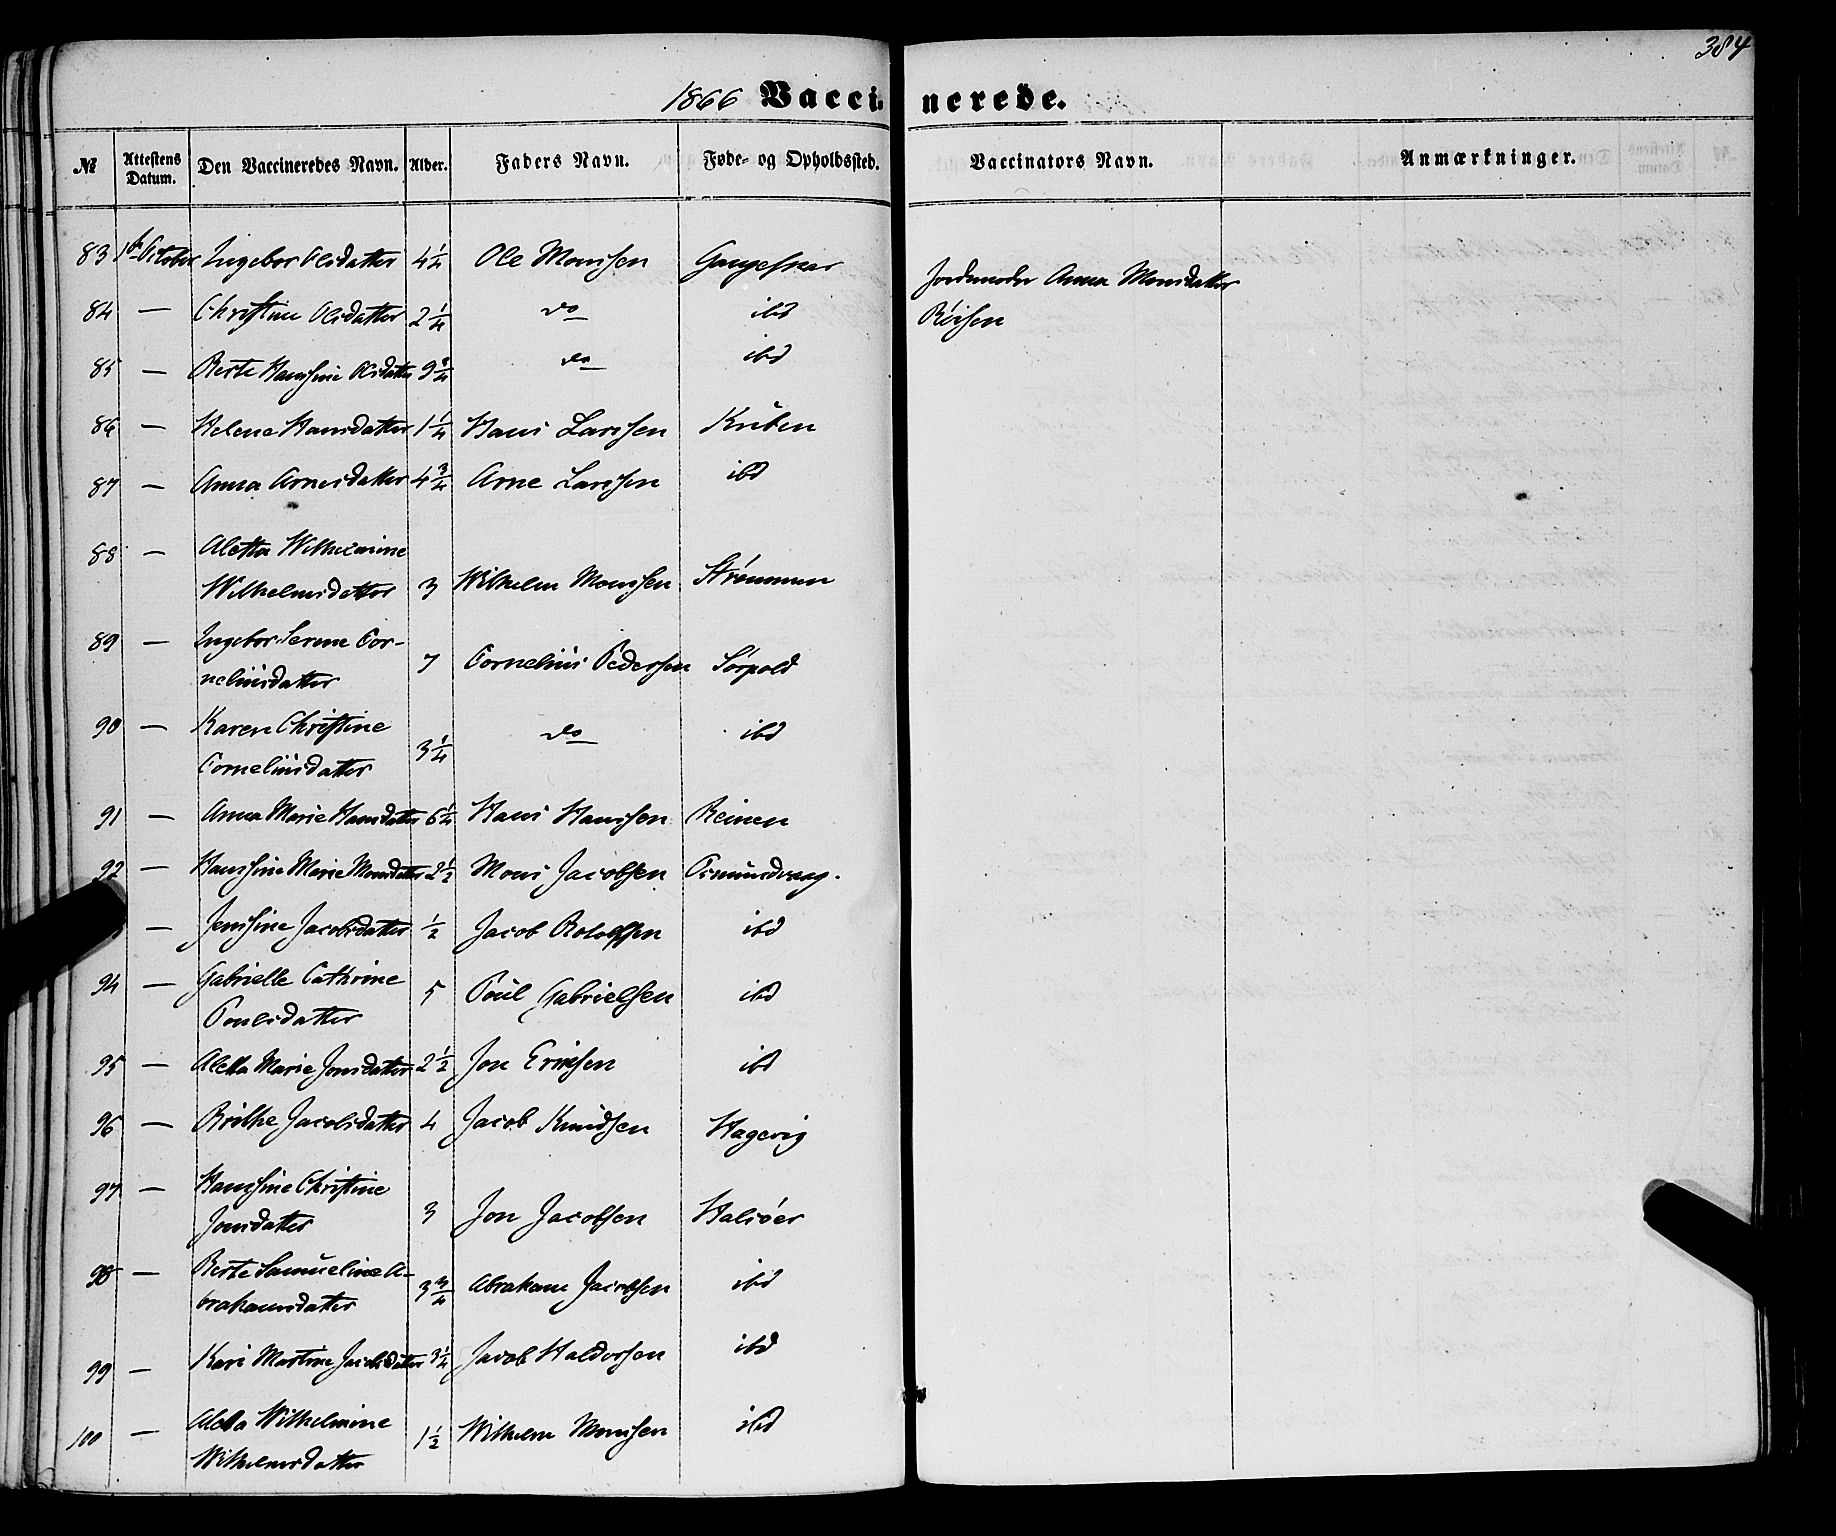 384
1866 Vaccinerede.
№ Attestens Datum. Den Vaccineredes Navn. Alder. Faders Navn. Føde- og Opholdssted. Vaccinators Navn. Anmærkninger.
83 1ste October Ingebor Olsdatter 4 1/4 Ole Monssen Gangesnær Jordemoder Anna Monsdatter
84 — Christine Olsdatter 2 1/4 do ibd Röisen
85 — Berte Hanssine Olsdatter 9 3/4 do ibd
86 — Helene Hansdatter 1 1/4 Hans Larssen Kuben
87 — Anna Arnesdatter 4 3/4 Arne Larssen ibd
88 — Aletta Wilhelmine
Wilhelmsdatter 3 Wilhelm Monssen Strömmen
89 — Ingebor Serene Cor-
neliusdatter 7 Cornelius Pedersen Sörpold
90 — Karen Christine
Corneliusdatter 3 1/4 do ibd
91 — Anna Marie Hansdatter 6 1/4 Hans Hanssen Reinen
92 — Hanssine Marie Monsdatter 2 1/2 Mons Jacobsen Osmundvaag.
— Jenssine Jacobsdatter 1/2 Jacob Roloffsen ibd
94 — Gabrielle Cathrine
Poulsdatter 5 Poul Gabrielsen ibd
95 — Aletta Marie Jonsdatter 2 1/2 Jon Eriksen ibd
96 — Brithe Jacobsdatter 4 Jacob Knudsen Hagevig
97 — Hanssine Christine
Jonsdatter 3 Jon Jacobsen Halsöer
98 — Berte Samueline A-
brahamsdatter 3 3/4 Abraham Jacobsen ibd
99 — Kari Martine Jacobsdatter 3 1/4 Jacob Haldorsen ibd
100 — Aletta Wilhelmine
Wilhelmsdatter 1 1/2 Wilhelm Monssen ibd